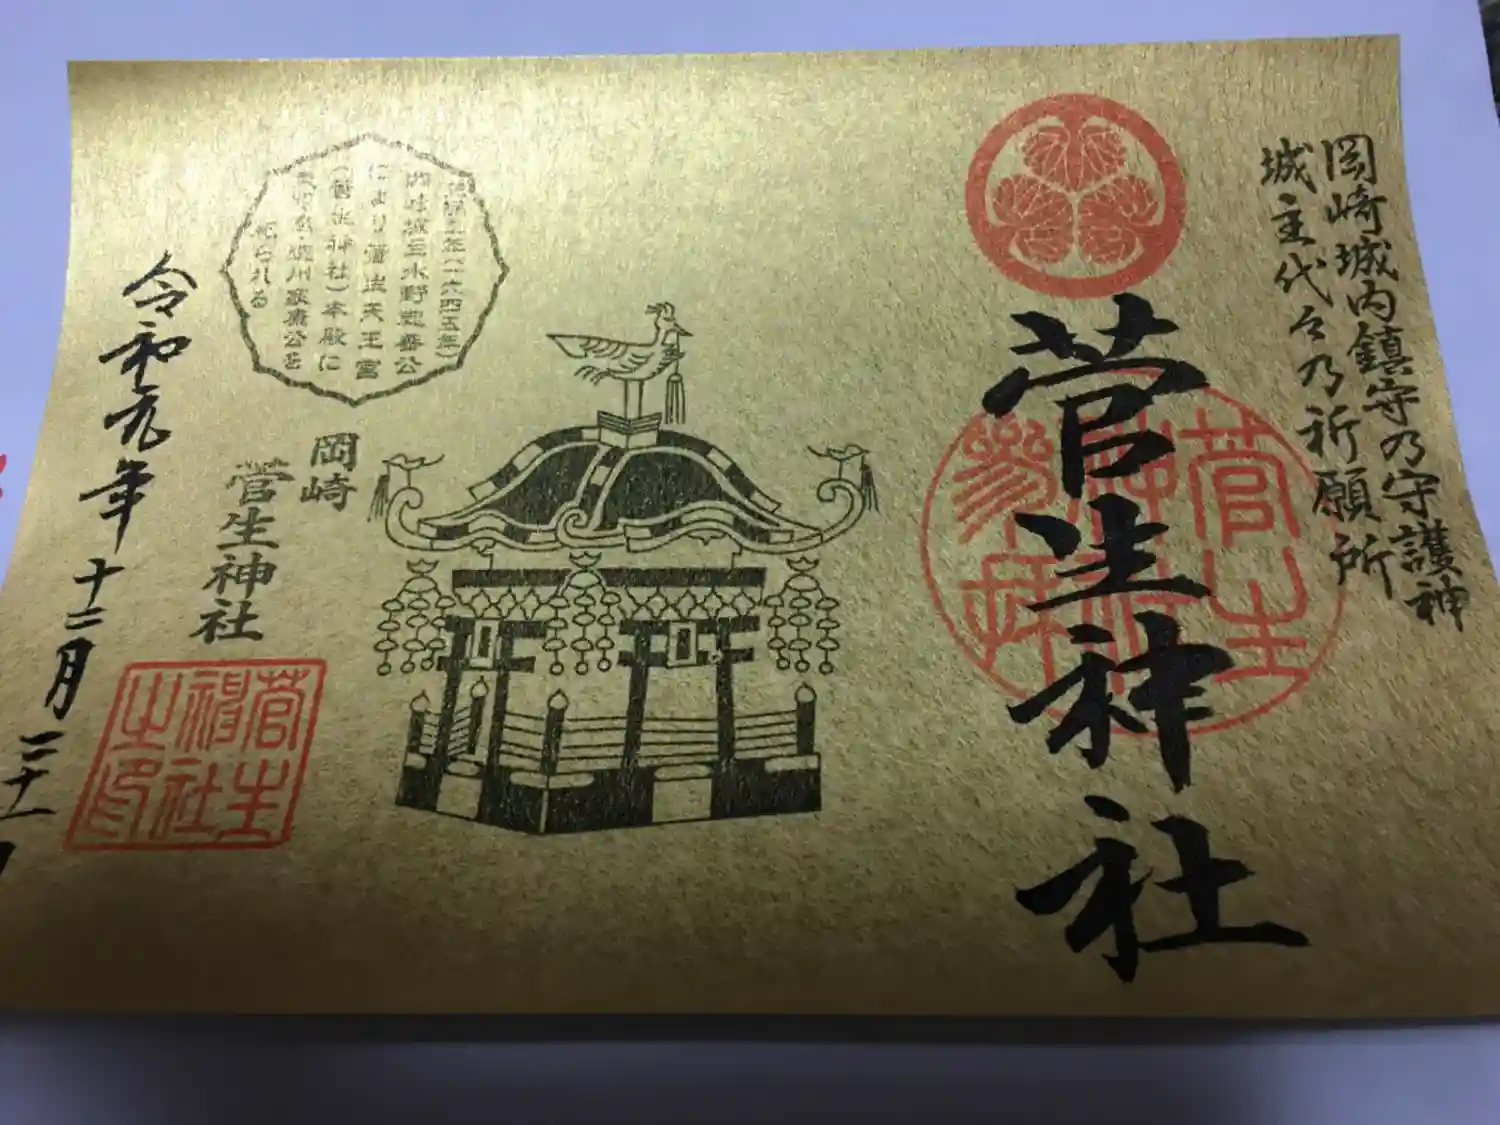 岡崎城内鎮守乃守護神
城主代々乃祈願所
菅生神社
菅生
神社
(一六四五年)
城主水野忠善公
により菅生天王宮
(菅生神社)本殿に
徳川家康公を
祀られる
岡崎
菅生神社
菅生
神社
之印
令和元年十二月二十一